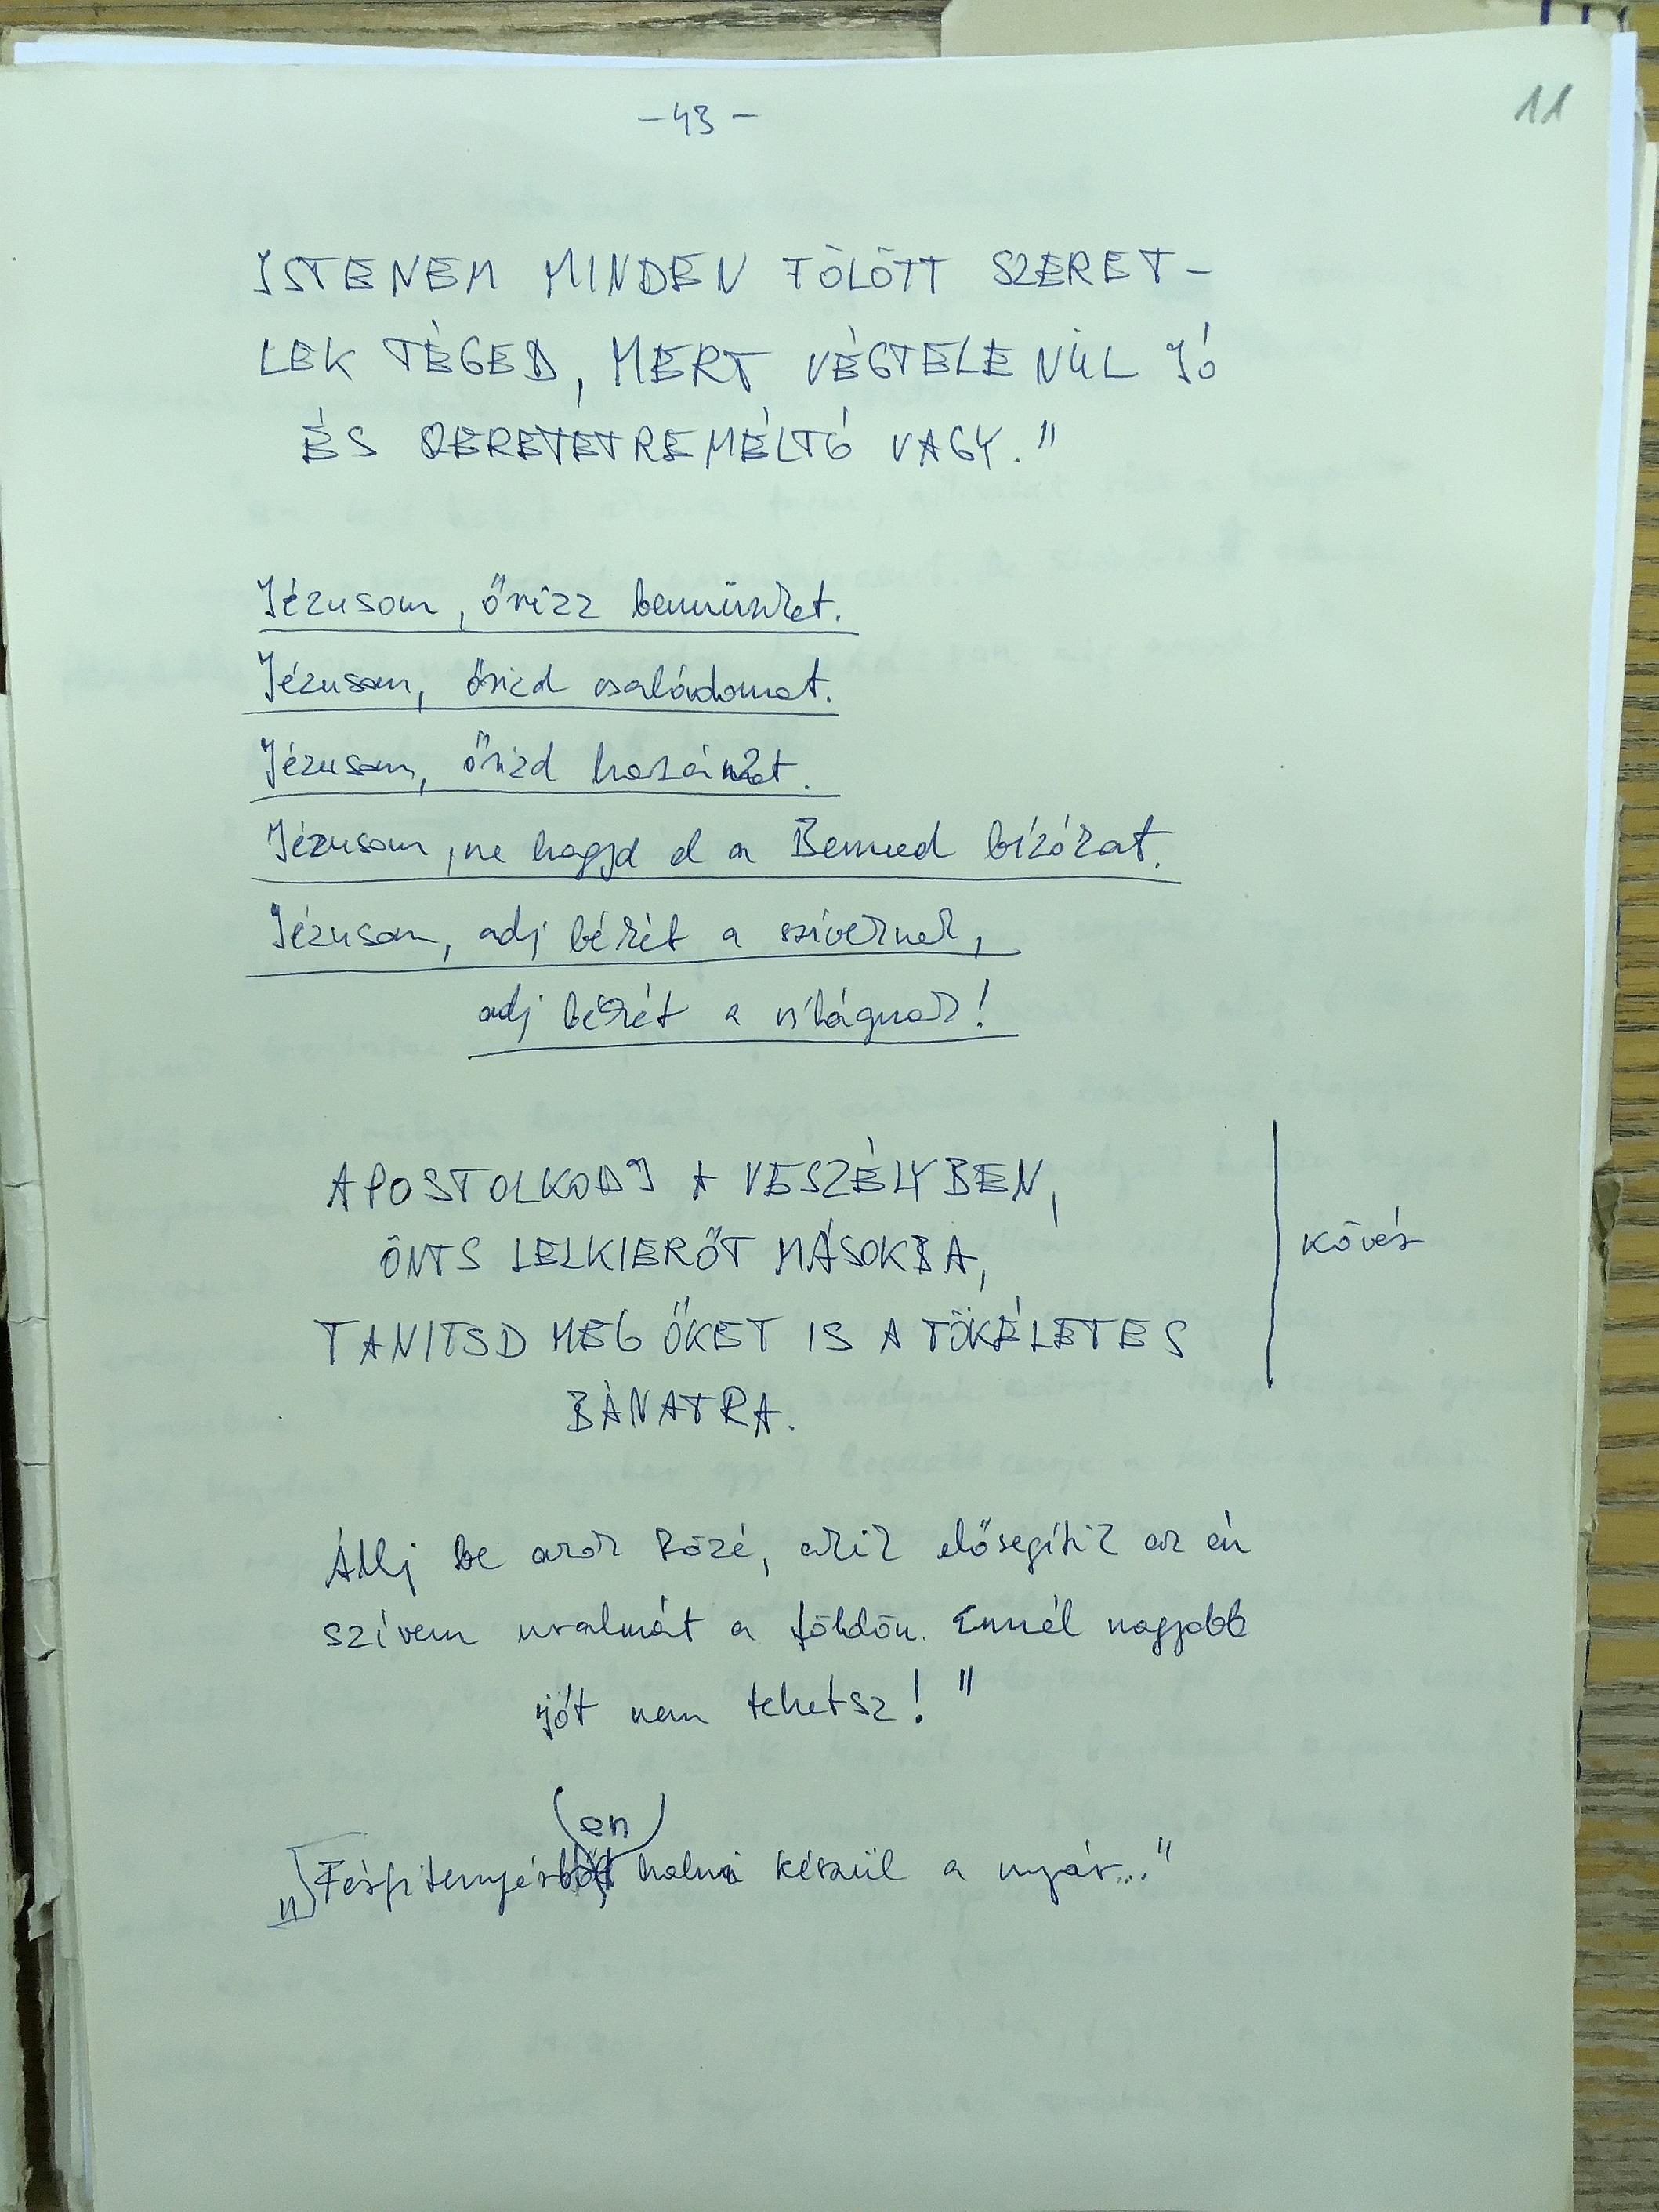 -43-
11
ISTENEM MINDEN FÖLÖTT SZERET-
LEK TÉGED, MERT VÉGTELENÜL JÓ
ÉS SZERETETREMÉLTÓ VAGY."
Jézusom, őrizz bennünket.
Jézusom, őrizd családomat.
Jézusom, őrizd hazánkat.
Jézusom, ne hagyd el a Benned bízókat.
Jézusom, adj békét a szíveknek,
adj békét a világnak!
APOSTOLKODJ A VESZÉLYBEN,
ÖNTS LELKIERŐT MÁSOKBA,
kövér
TANITSD MEG ŐKET IS A TÖKÉLETES
BÁNATRA.
Állj be azok közé, akik elősegítik az én
szívem uralmát a földön. Ennél nagyobb
jót nem tehetsz!"
(en)
halni készül a nyár..."